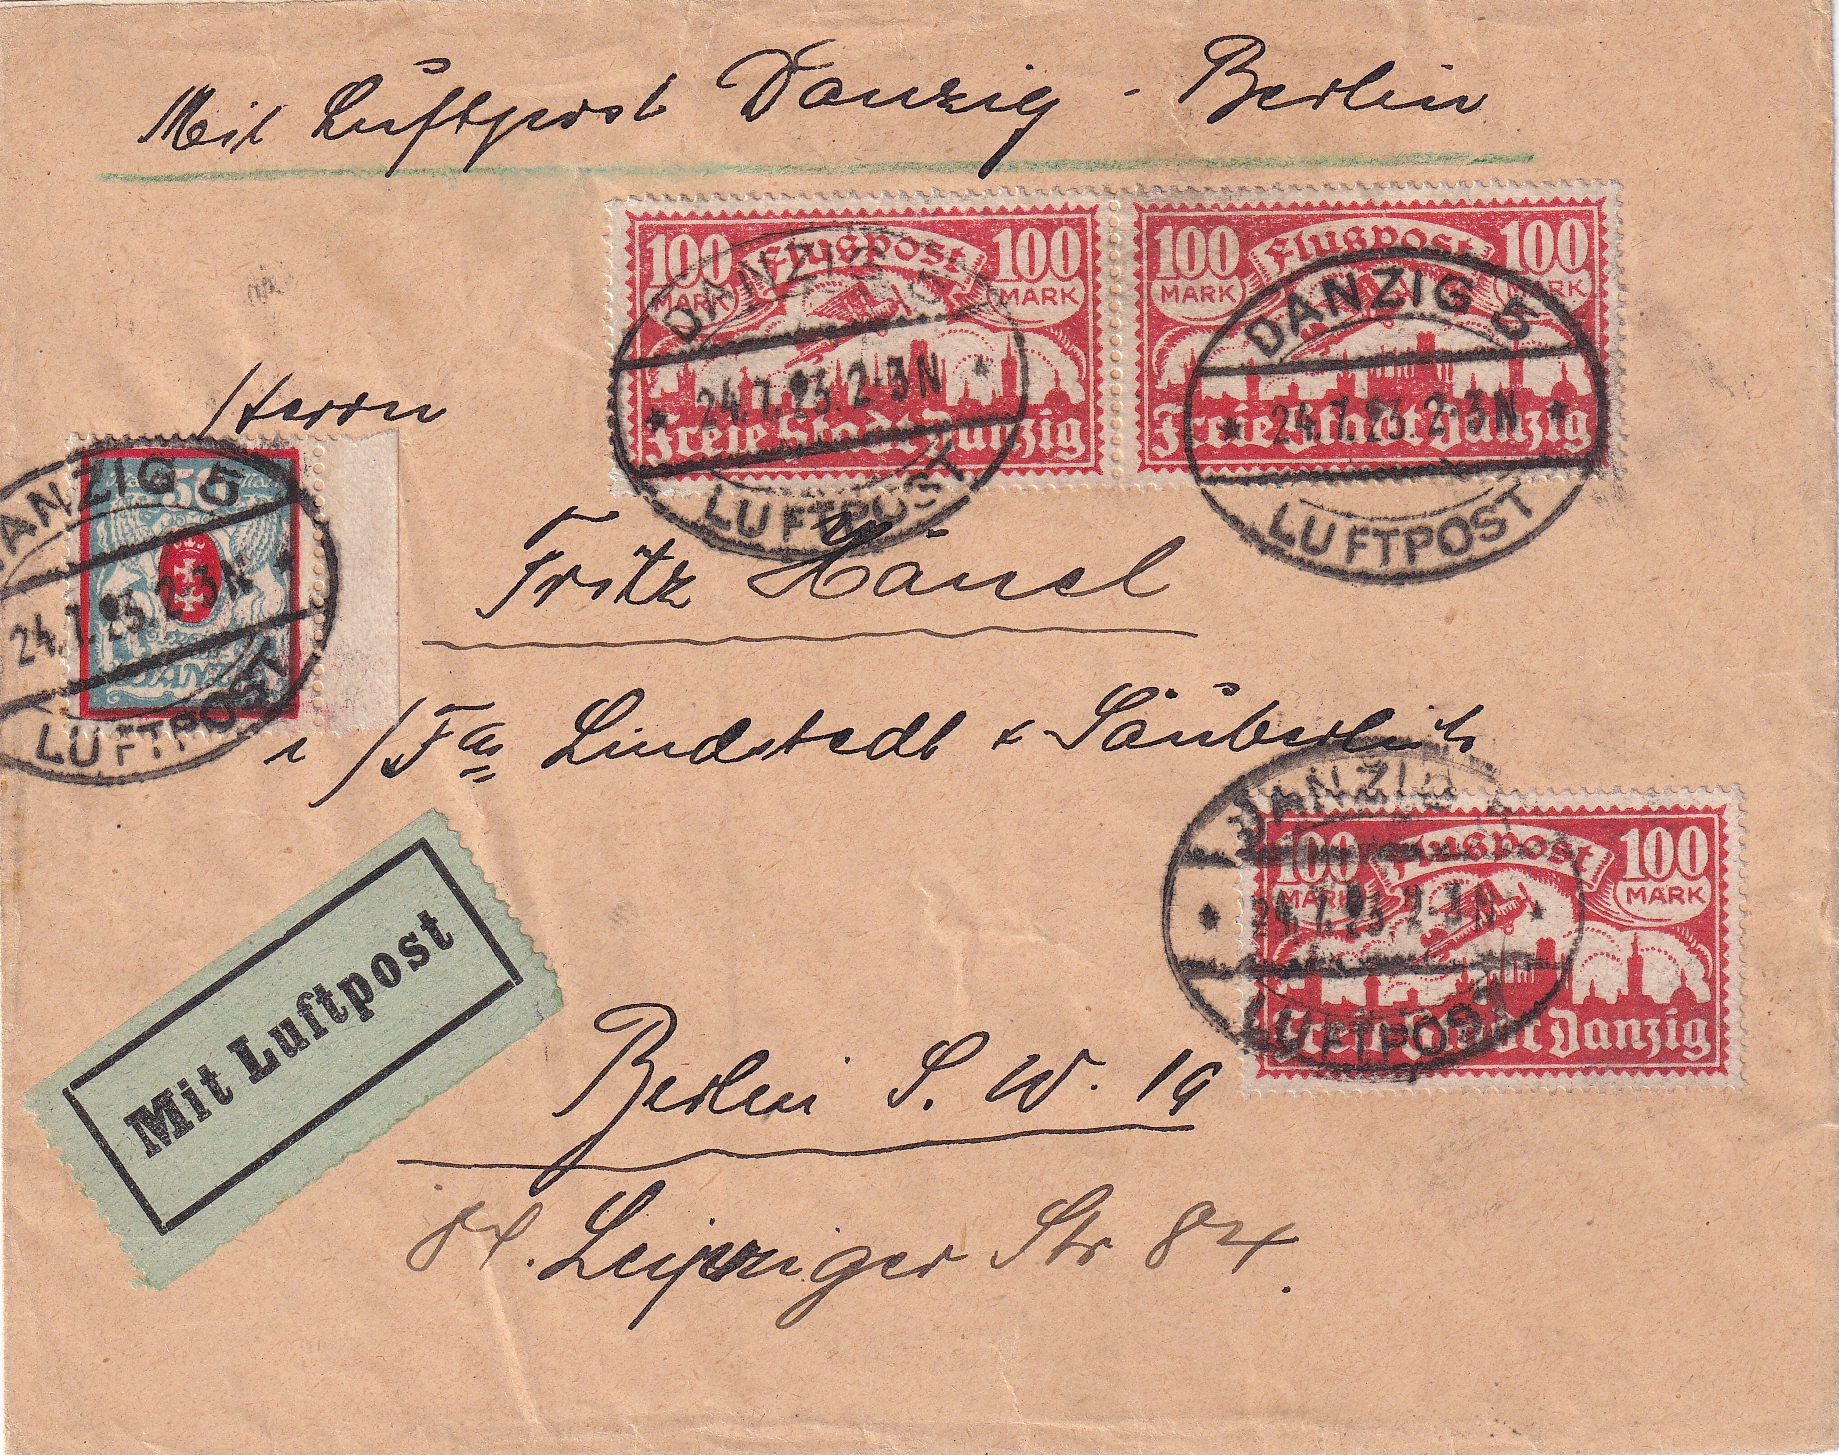 Mit Luftpost Danzig - Berlin
100 Flugpost 100
MARK MARK
Freie Stadt Danzig
DANZIG 5
24.7.23. 2-3N
LUFTPOST
100 Flugpost 100
MARK MARK
Freie Stadt Danzig
DANZIG 5
24.7.23. 2-3N
LUFTPOST
Herrn
50
DANZIG
DANZIG 5
24.7.23. 2-3N
LUFTPOST
Fritz Hänel
i/Fa Lindstedt & Säuberlich
100 Flugpost 100
MARK MARK
Freie Stadt Danzig
DANZIG
24.7.23. 2-3N
LUFTPOST
Mit Luftpost
Berlin S. W. 19
Leipziger Str 84.